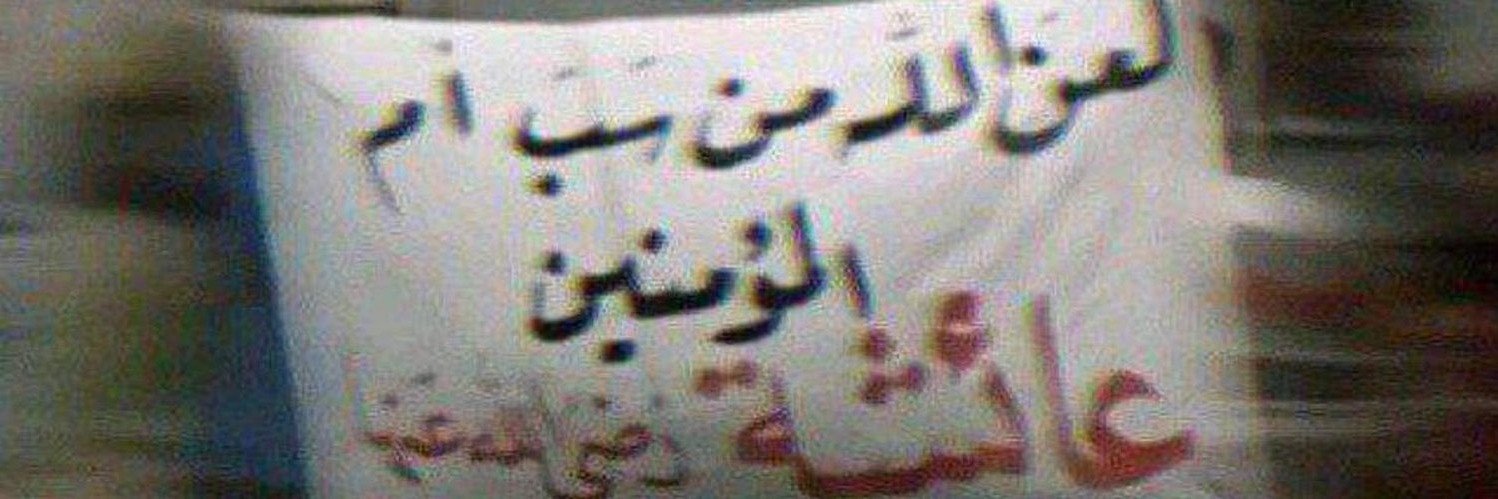 لعن الله من سَبَّ أم
المؤمنين
عائشة رضي الله عنها